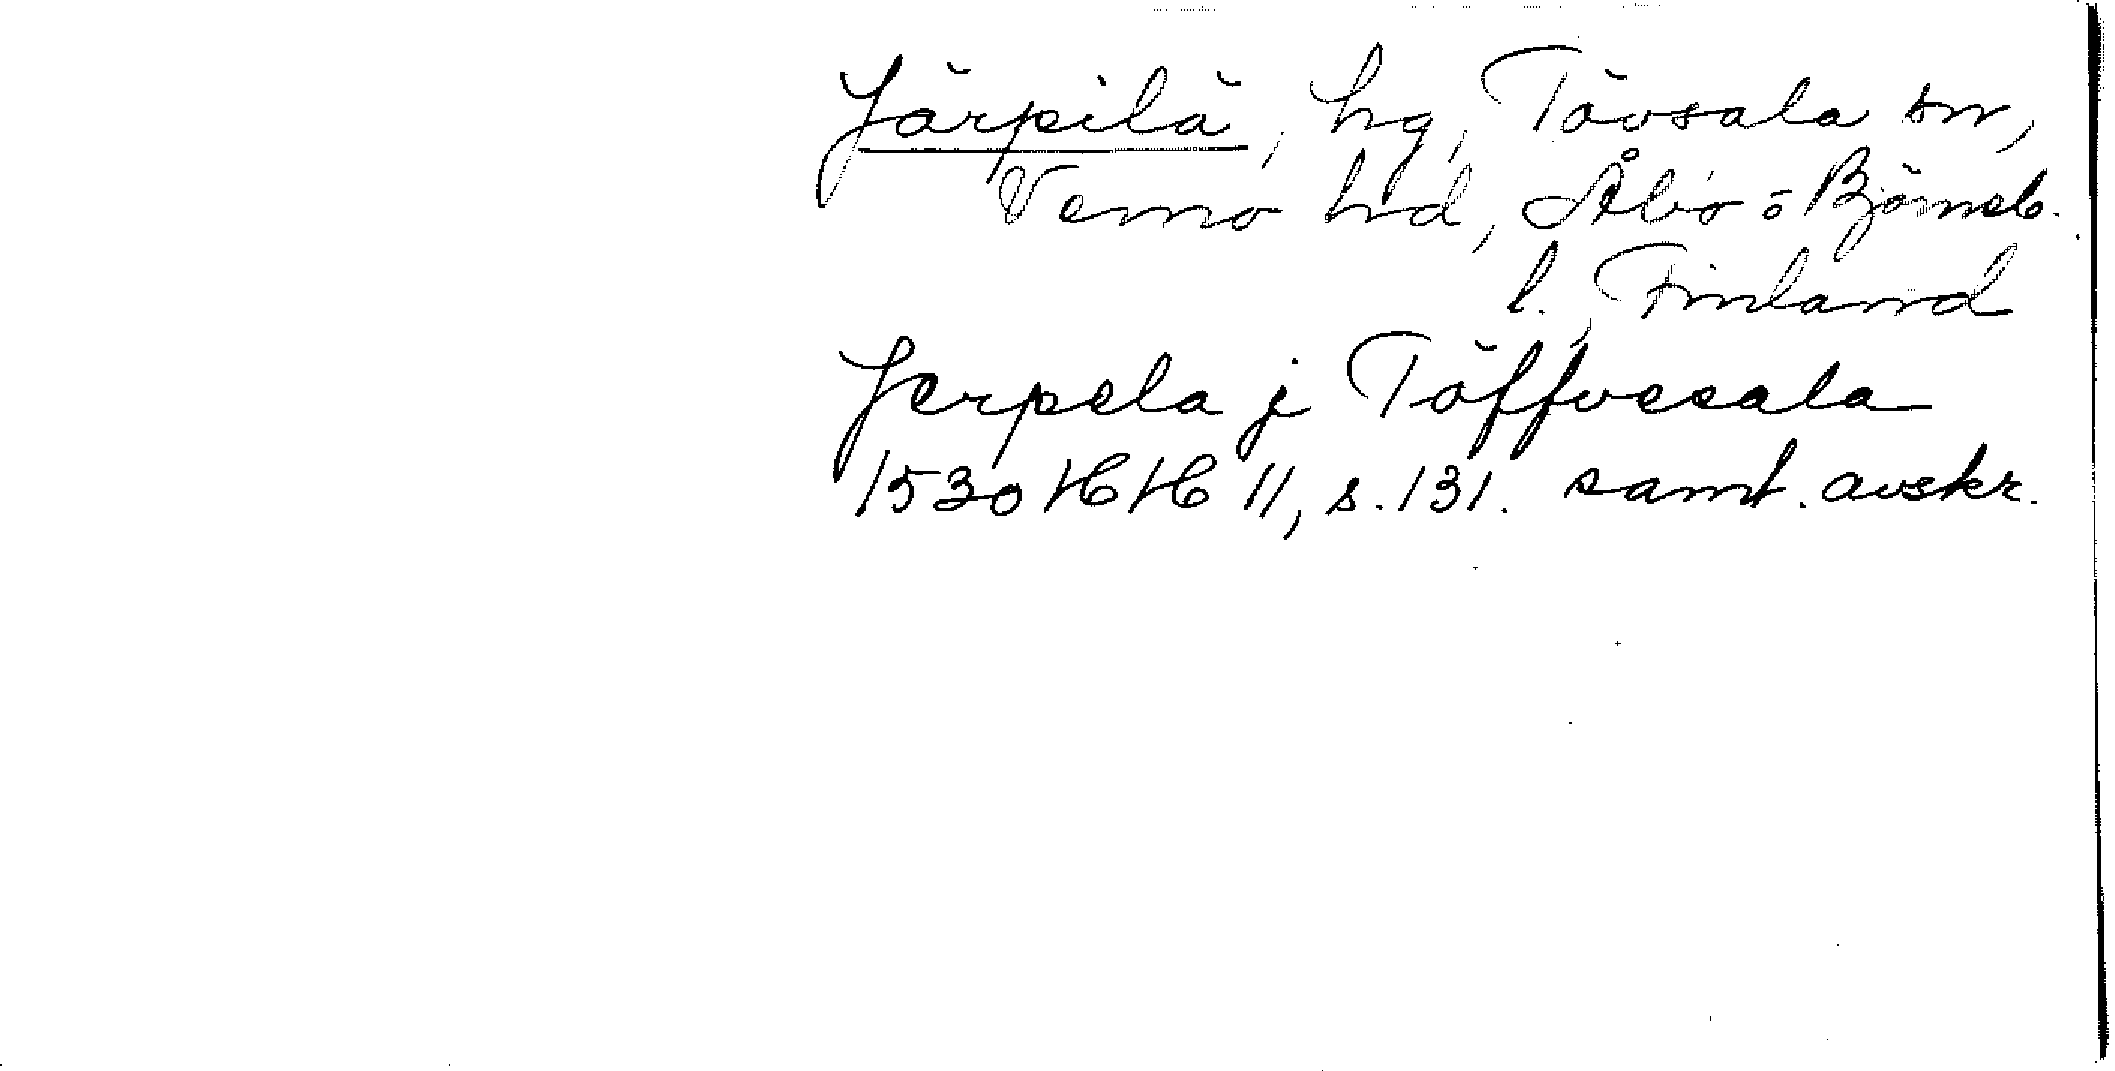 Järpilä, hg, Tövsala sn,
Vemo hd, Åbo o Björneb.
l., Finland
Jerpela j Töffvesala
1530 HH 11, s. 131. samt. avskr.